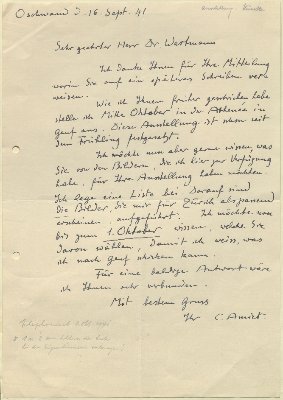 Oschwand d. 16 Sept. 41
Ausstellung Zürich
Sehr geehrter Herr Dr Wartmann
Ich danke Ihnen für Ihre Mitteilung
worin Sie auf ein späteres Schreiben ver-
weisen.
Wie ich Ihnen früher geschrieben habe
stelle ich Mitte Oktober in der Athénée in
Genf aus. Diese Ausstellung ist schon seit
dem Frühling festgesetzt.
Ich möchte nun aber gerne wissen was
Sie von den Bildern, die ich hier zur Verfügung
habe, für Ihre Ausstellung haben möchten.
Ich lege eine Liste bei. Darauf sind
die Bilder, die mir für Zürich als passend
erscheinen, aufgeführt. Ich möchte nun
bis zum 1. Oktober wissen, welche Sie
davon wählen, damit ich weiss, was
ich nach Genf schicken kann.
Für eine baldige Antwort wäre
ich Ihnen sehr verbunden.
Mit bestem Gruss
Ihr C. Amiet